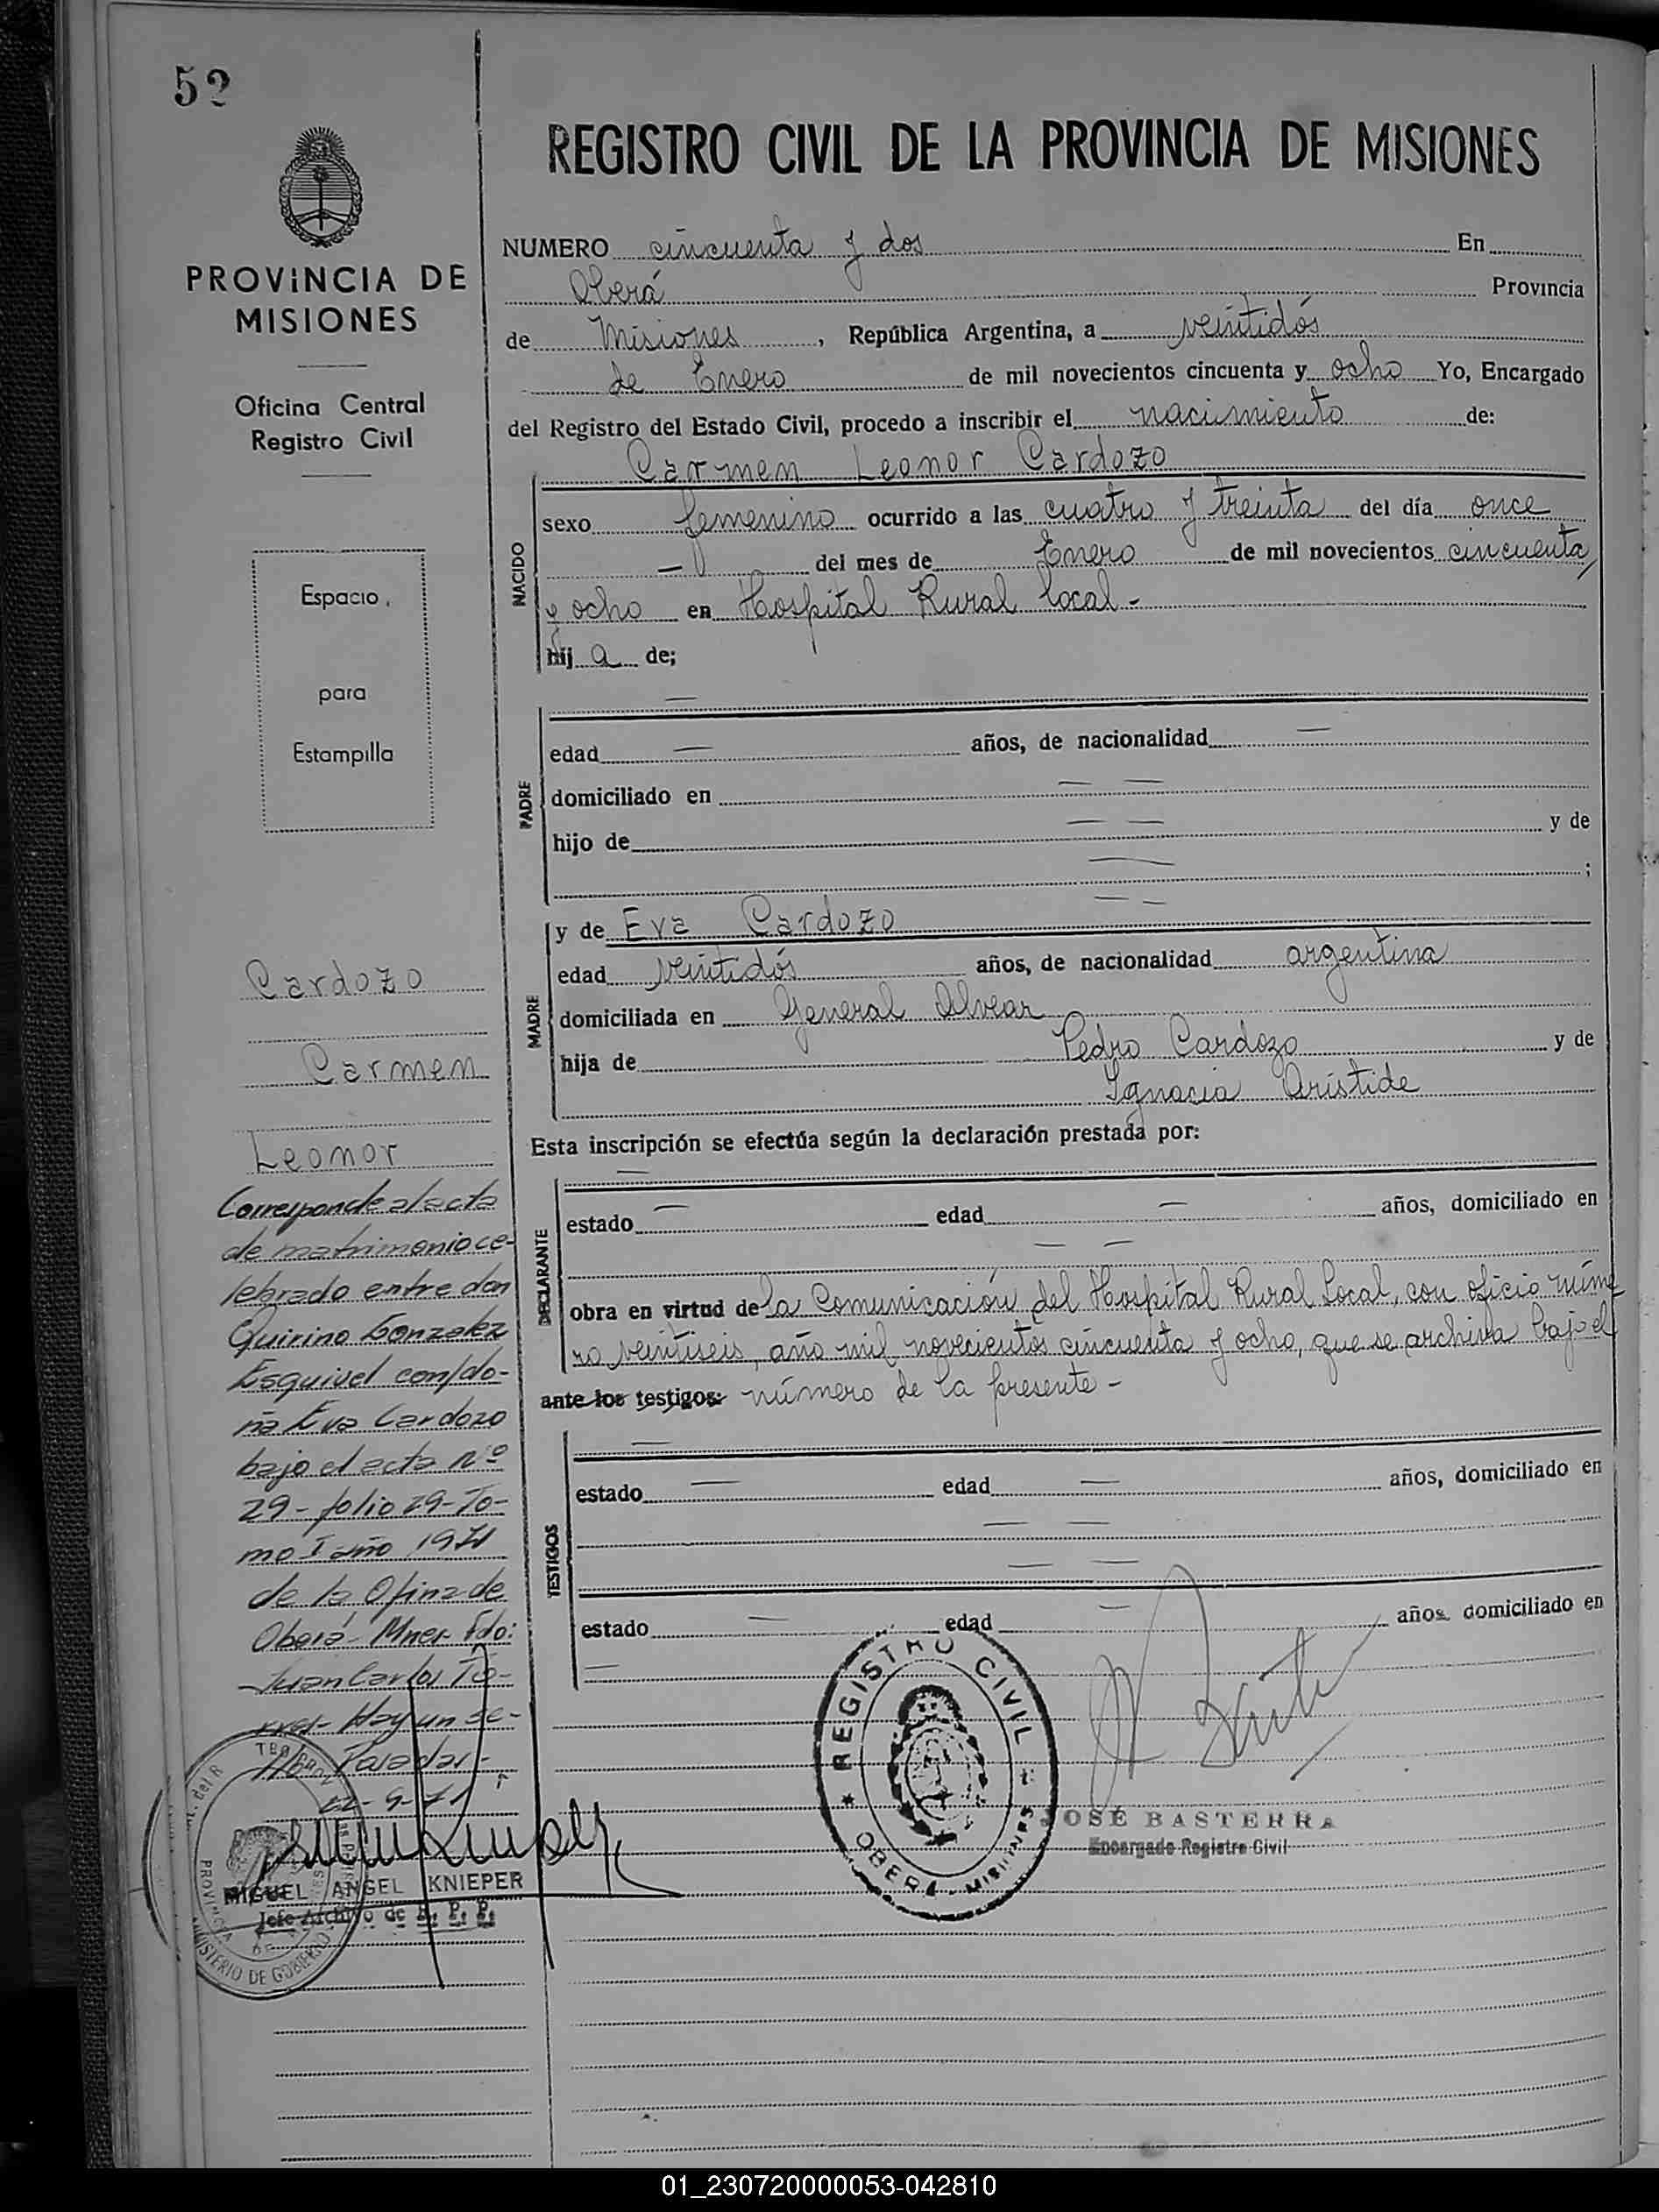 52
PROVINCIA DE
MISIONES
Oficina Central
Registro Civil
Espacio
para
Estampilla
Cardozo
Carmen
Leonor
Corresponde al acta
de matrimonio ce-
lebrado entre don
Quirino Gonzalez
Esquivel con/do-
ña Eva Cardozo
bajo el acta nº
29-folio 29-To-
mo I año 1971
de la Ofina de
Oberá- Mnes Fdo:
Juan Carlos
Hay un se-
Posadas-
9-71
MIGUEL ANGEL KNIEPER
Jefe Archivo de R. P. P.
PROVINCIA DE
MINISTERIO DE GOBIERNO
REGISTRO CIVIL DE LA PROVINCIA DE MISIONES
NUMERO cincuenta y dos En
Oberá Provincia
de Misiones, República Argentina, a veintidós
de Enero de mil novecientos cincuenta y ocho Yo, Encargado
del Registro del Estado Civil, procedo a inscribir el nacimiento de:
Carmen Leonor Cardozo
NACIDO
sexo femenino ocurrido a las cuatro y treinta del día once
— del mes de Enero de mil novecientos cincuenta
y ocho en Hospital Rural local.-
hij a de;
—
PADRE
edad — años, de nacionalidad —
domiciliado en — —
hijo de — — y de
— ;
— —
MADRE
y de Eva Cardozo
edad veintidós años, de nacionalidad argentina
domiciliada en General Alvear
hija de Pedro Cardozo y de
Ignacia Arístide
Esta inscripción se efectúa según la declaración prestada por:
—
DECLARANTE
estado — edad — años, domiciliado en
— —
obra en virtud de la Comunicación del Hospital Rural Local, con oficio núme
ro veintiseis, año mil novecientos cincuenta y ocho, que se archiva bajo el
ante los testigos: número de la presente-
—
TESTIGOS
estado — edad — años, domiciliado en
— —
— —
estado — edad — años, domiciliado en
—
REGISTRO CIVIL
OBERA - MISIONES
JOSÉ BASTERRA
Encargado Registro Civil
01_230720000053-042810